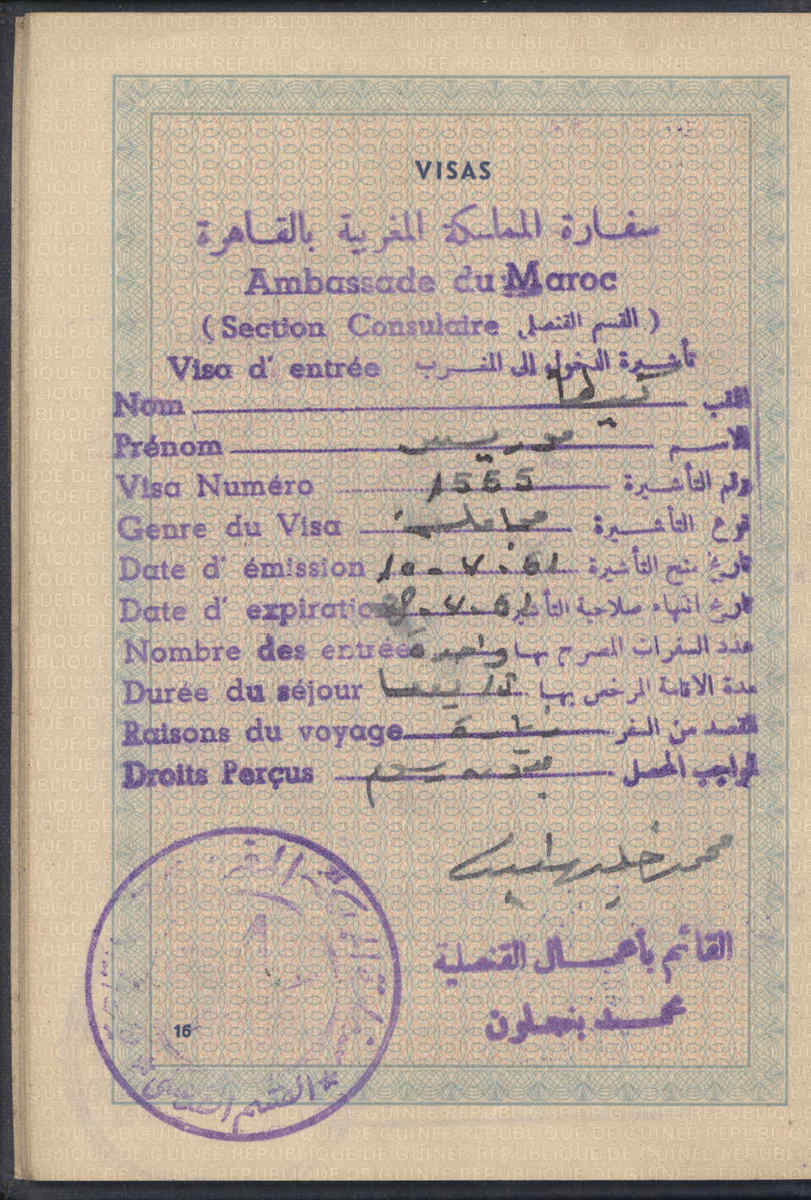 VISAS
سفارة المملكة المغربية بالقاهرة
Ambassade du Maroc
(Section Consulaire القسم القنصلي)
Visa d' entrée تأشيرة الدخول الى المغرب
Nom اللقب
Prénom موريس الاسم
Visa Numéro 1555 رقم التأشيرة
Genre du Visa مجاملة نوع التأشيرة
Date d' émission تاريخ منح التأشيرة
Date d' expiration تاريخ انتهاء صلاحية التأشيرة
Nombre des entrées واحدة عدد السفرات المصرح بها
Durée du séjour مدة الاقامة المرخص بها
Raisons du voyage زيارة القصد من السفر
Droits Perçus بدون رسم الواجب المحصل
القائم بأعمال القنصلية
محمد بنجلون
القسم القنصلي
16